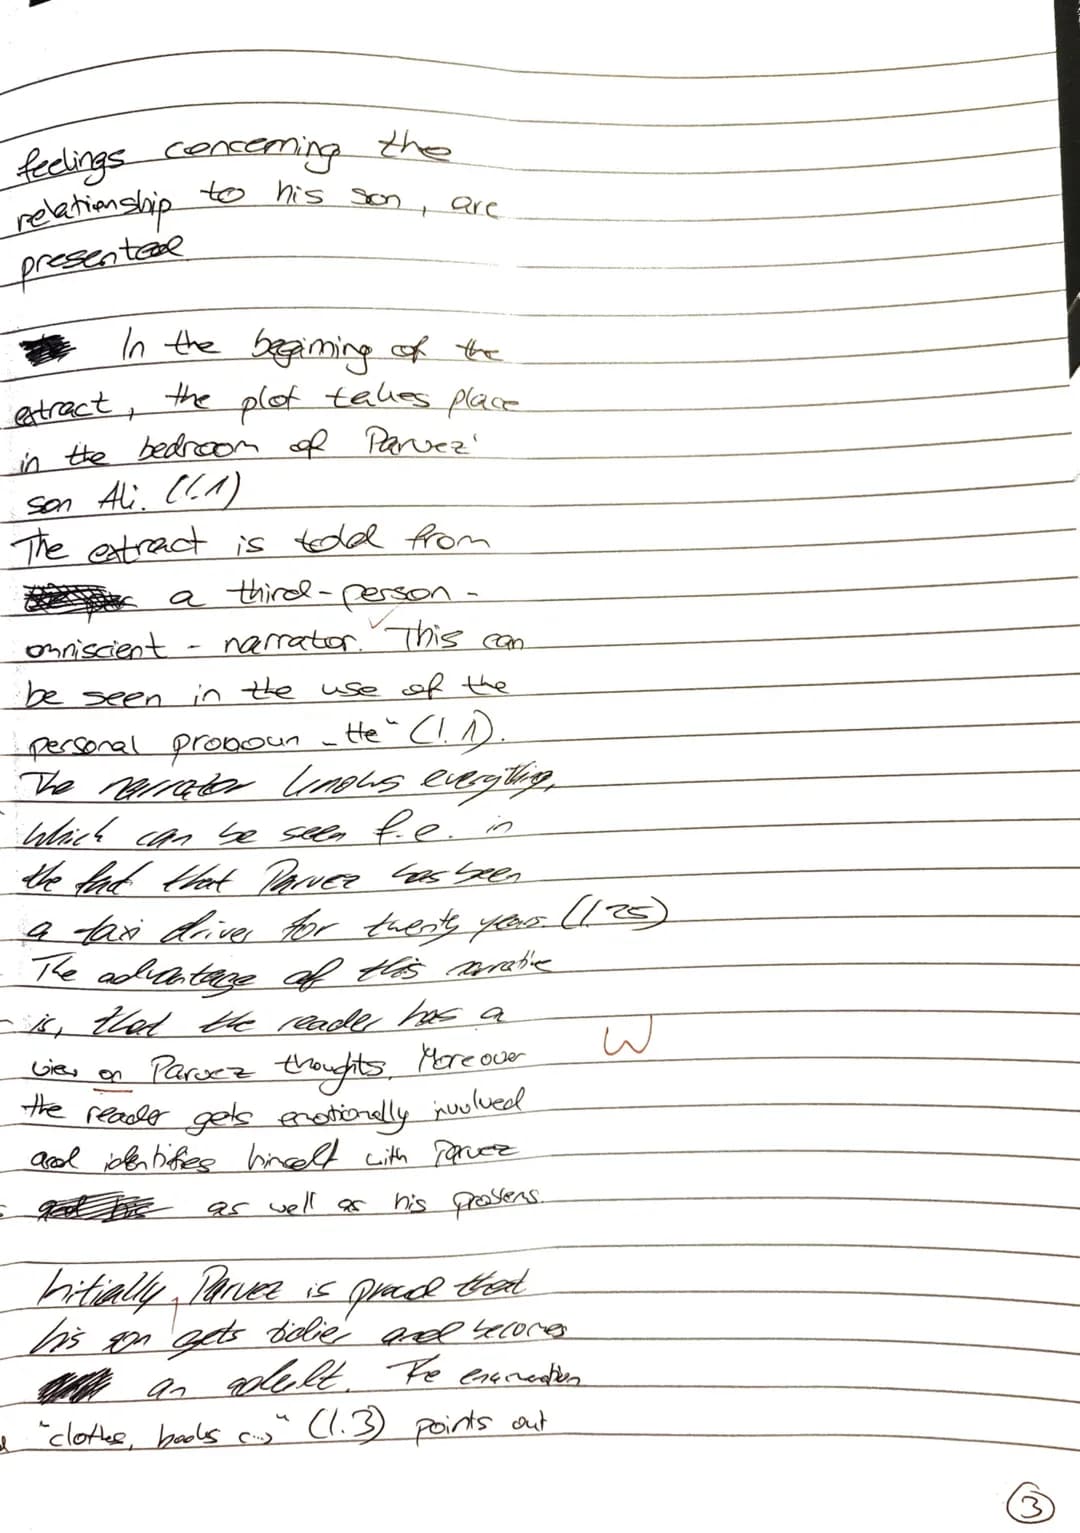 feelings concerning the
relationship to his son, are
presented
In the begining of the
extract, the plot takes place
in the bedroom of Parvez'
son Ali. (l.1)
The extract is told from
a third-person-
omniscient - narrator. This can
be seen in the use of the
personal pronoun „He“ (l. 1).
The narrator knows everything,
which can be seen f.e. in
the fact that Parvez has been
a taxi driver for twenty years. (l.25)
The advantage of this narrative
is, that the reader has a
W
view on Parvez thoughts. Moreover
the reader gets emotionally involved
and identifies himself with Parvez
as well as his problems.
Initially, Parvez is proud that
his son gets tidier and becomes
an adult. The enumeration
"clothes, books (...)“ (l.3) points out
3